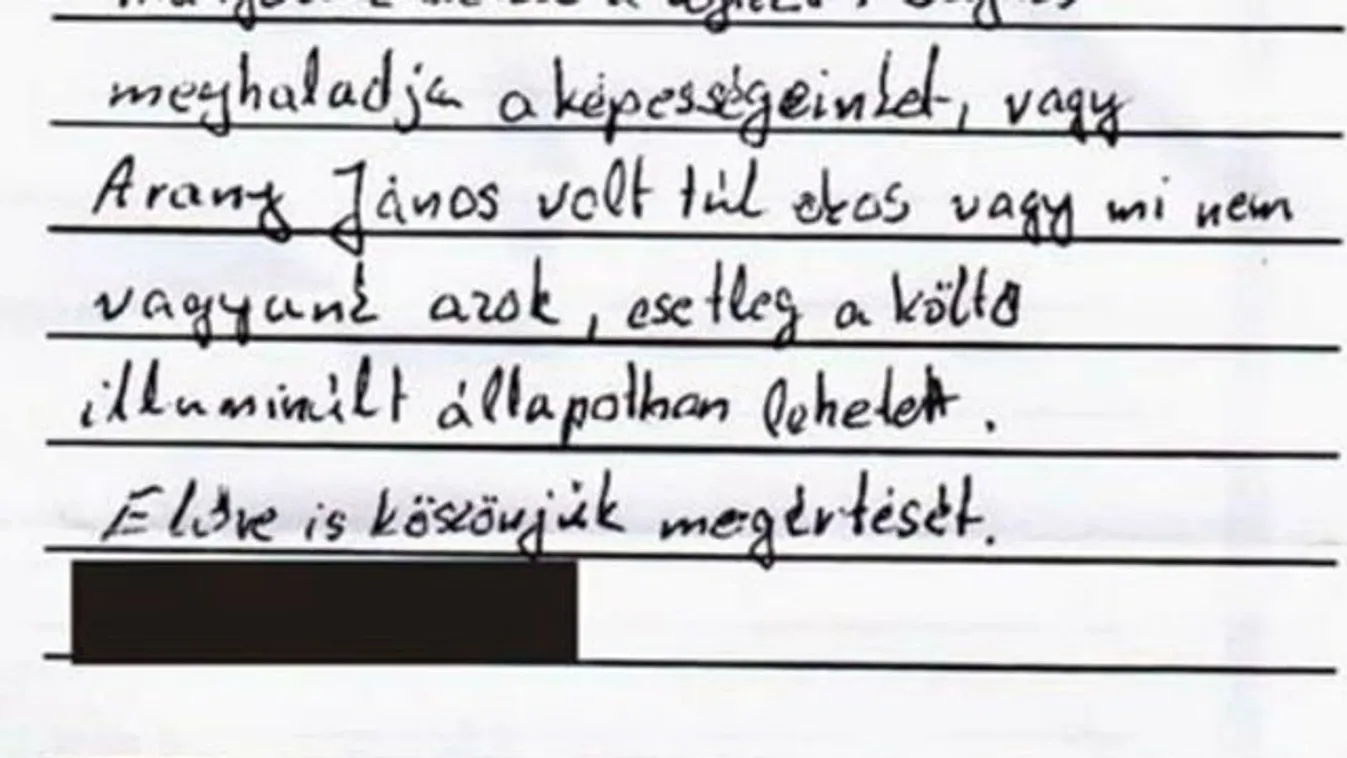 meghaladja a képességeinket, vagy
Arany János volt túl okos vagy mi nem
vagyunk azok, esetleg a költő
illuminált állapotban lehetett.
Előre is köszönjük megértését.